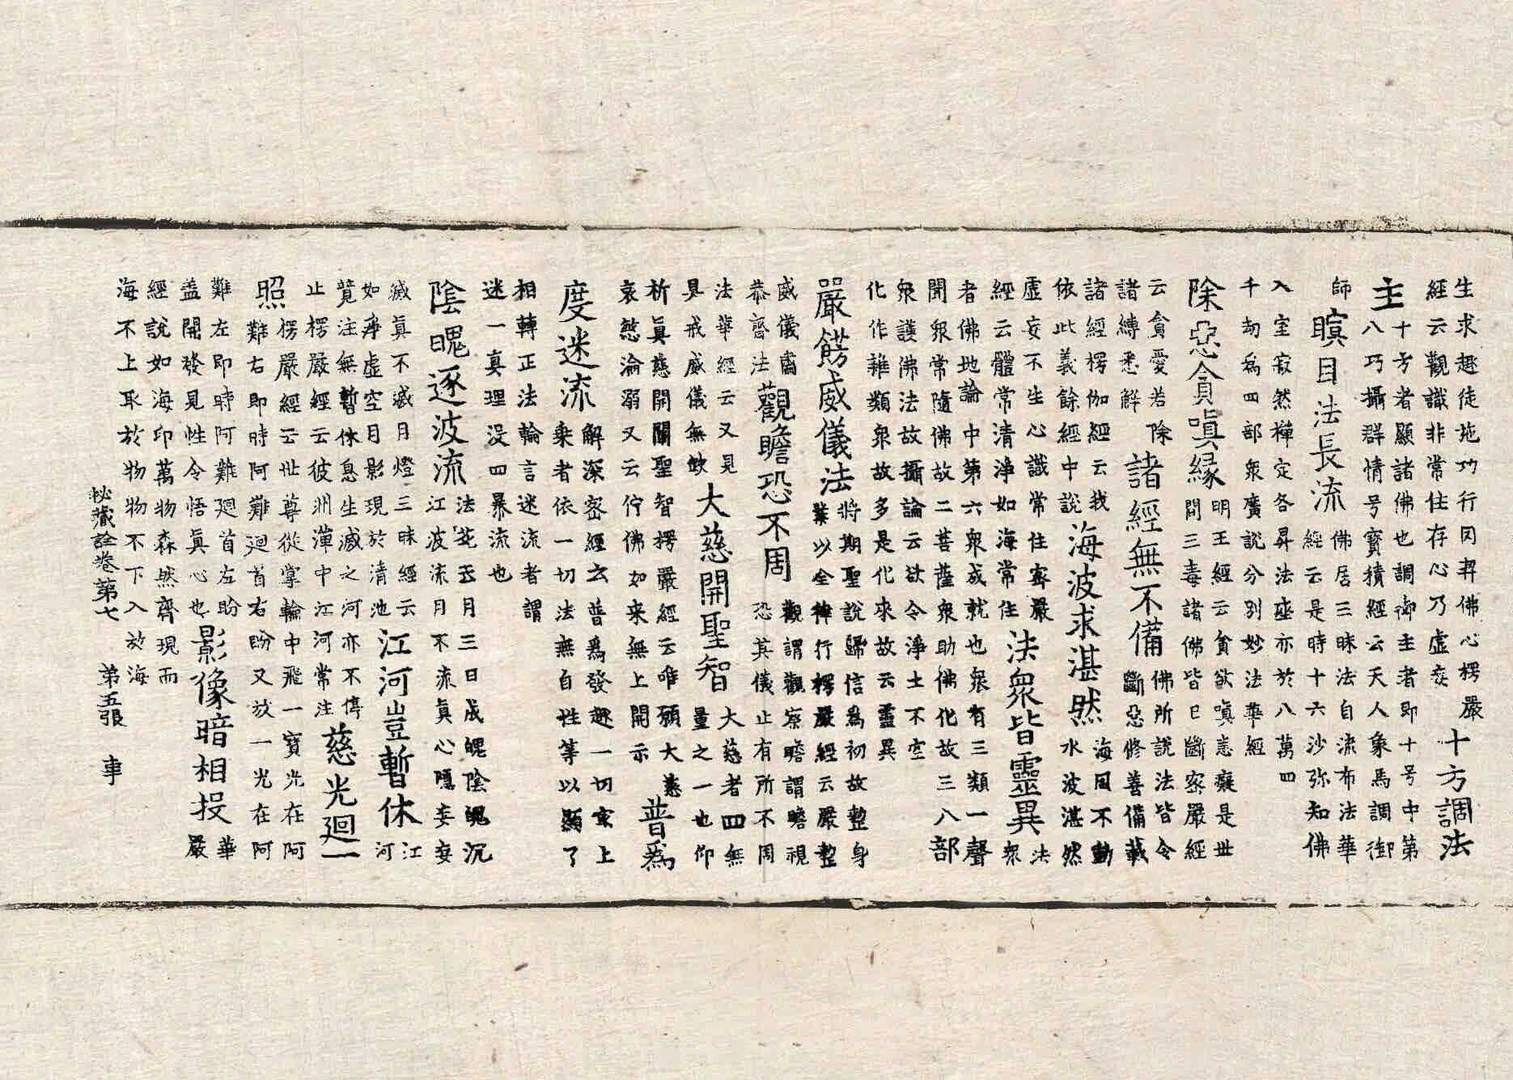 生求趣徒施功行同弃佛心楞嚴
經云觀識非常住存心乃虛妄
十方調法
主
十方者顯諸佛也調御主者即十号中第
八巧攝群情号寶積經云天人象馬調御
師
瞑目法長流
佛居三昧法自流布法華
經云是時十六沙弥知佛
入室寂然禪定各昇法座亦於八萬四
千劫為四部衆廣說分別妙法華經
除惡貪嗔緣
明王經云貪欲嗔恚癡是世
間三毒諸佛皆已斷密嚴經
云貪愛若除
諸縛悉解
諸經無不備
佛所說法皆令
斷惡修善備載
諸經楞伽經云我
依此義餘經中說
海波求湛然
海因不動
水波湛然
虛妄不生心識常住密嚴
經云體常清淨如海常住
法衆皆靈異
法
衆
者佛地論中第六衆成就也衆有三類一聲
聞衆常隨佛故二菩薩衆助佛化故三八部
衆護佛法故攝論云欲令淨土不空
化作雜類衆故多是化來故云靈異
嚴餝威儀法
將期聖說歸信為初故整身
業以全律行楞嚴經云嚴整
威儀肅
恭齊法
觀瞻恐不周
觀謂觀察瞻謂瞻視
恐其儀止有所不周
法華經云又見
具戒威儀無缺
大慈開聖智
大慈者四無
量之一也仰
祈眞慈開闡聖智楞嚴經云唯願大慈
哀愍淪溺又云佇佛如來無上開示
普為
度迷流
解深密經云普為發趣一切乘上
乘者依一切法無自性等以顯了
相轉正法輪言迷流者謂
迷一真理没四暴流也
陰魄逐波流
法花玉月三日成魄陰魄沉
江波流月不流真心隱妄妄
滅真不滅月燈三昧經云
如淨虛空月影現於清池
江河豈暫休
江
河
竟注無暫休息生滅之河亦不停
止楞嚴經云彼洲潬中江河常注
慈光廻一
照
楞嚴經云世尊從掌輪中飛一寶光在阿
難右即時阿難廻首右盻又放一光在阿
難左即時阿難廻首左盻
盖開發見性令悟眞心也
影像暗相投
華
嚴
經說如海印萬物森然齊現而
海不上取於物物不下入於海
秘藏詮卷第七 第五張 事